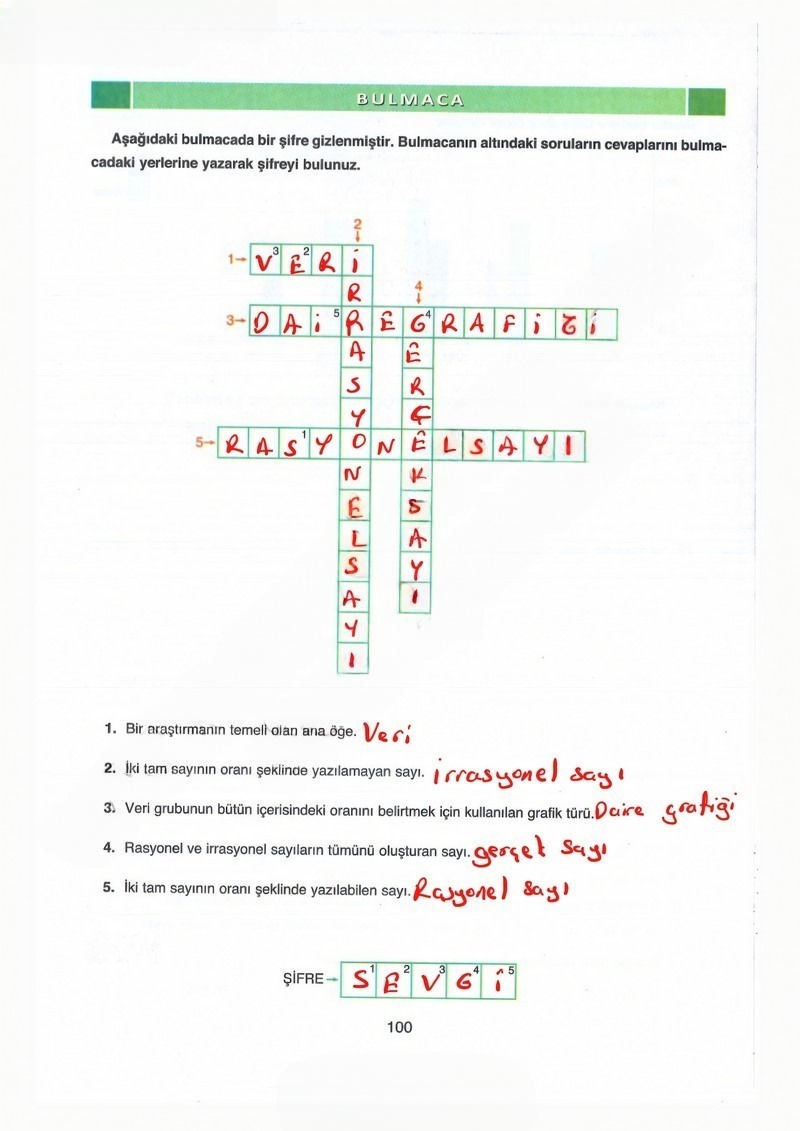 BULMACA
Aşağıdaki bulmacada bir şifre gizlenmiştir. Bulmacanın altındaki soruların cevaplarını bulma-
cadaki yerlerine yazarak şifreyi bulunuz.
2
1→ V3 E2 R İ
R
4
3→ D A İ5 R E G4 R A F İ Ğ İ
A E
S R
Y Ç
5→ R A S1 Y O N E L S A Y I
N K
E S
L A
S Y
A I
Y
I
1. Bir araştırmanın temeli olan ana öğe. Veri
2. İki tam sayının oranı şeklinde yazılamayan sayı. irrasyonel sayı
3. Veri grubunun bütün içerisindeki oranını belirtmek için kullanılan grafik türü. Daire grafiği
4. Rasyonel ve irrasyonel sayıların tümünü oluşturan sayı. gerçek sayı
5. İki tam sayının oranı şeklinde yazılabilen sayı. Rasyonel sayı
ŞİFRE→ S1 E2 V3 G4 İ5
100